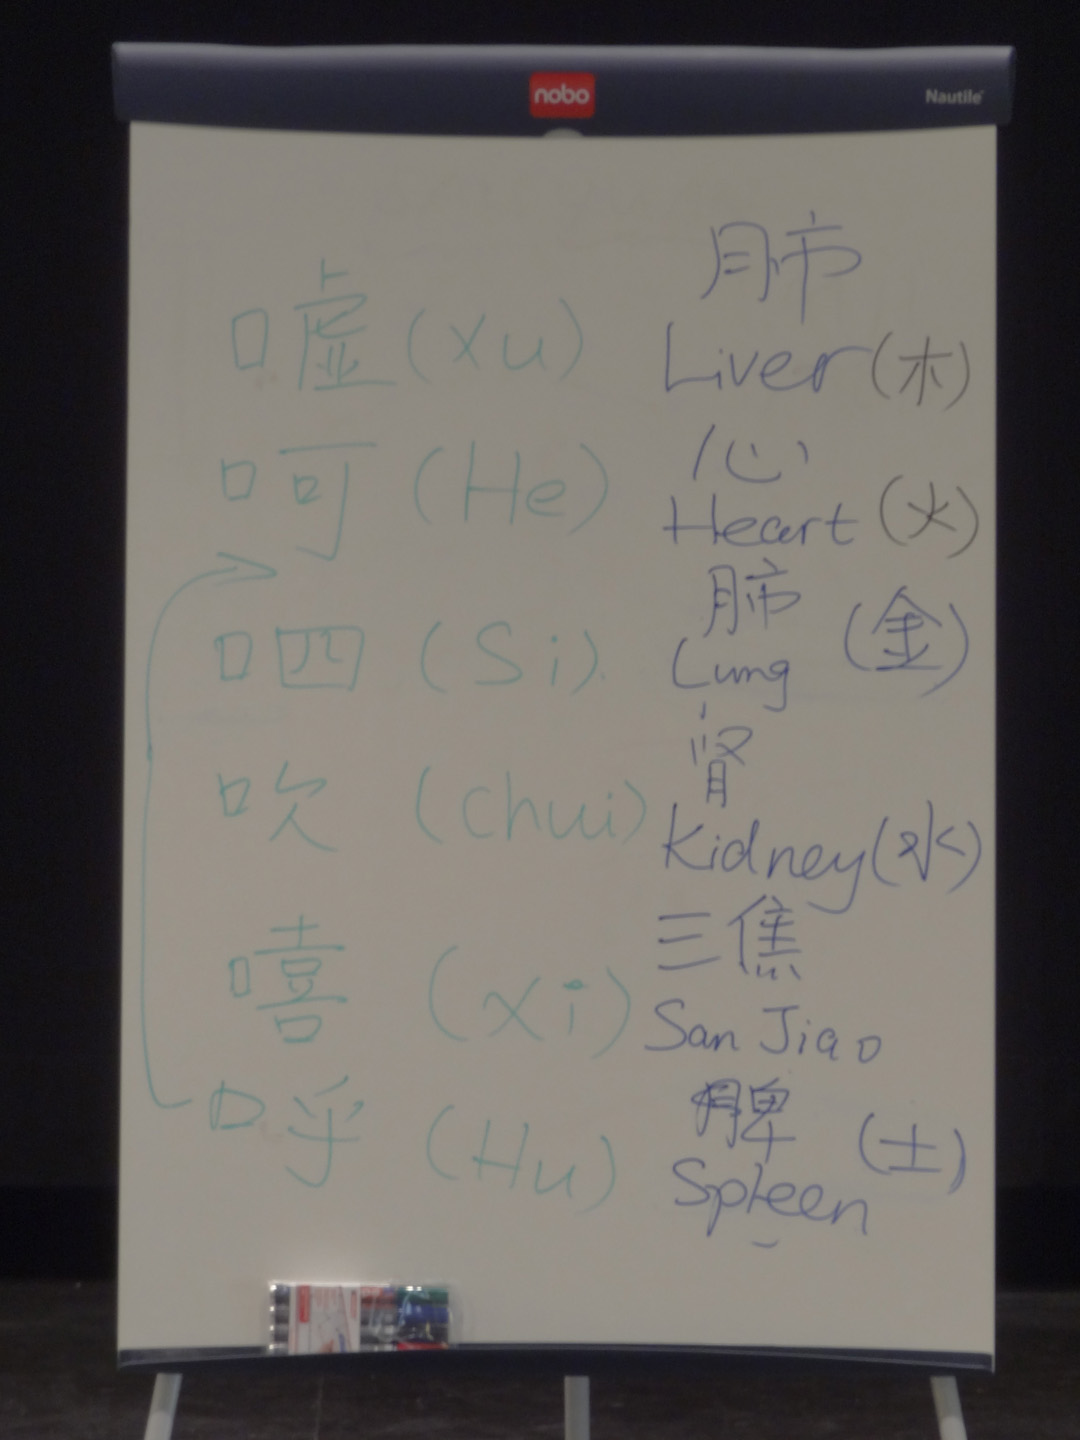 nobo
Nautile
肺
嘘 (Xu) Liver (木)
心
呵 (He) Heart (火)
肺
呬 (Si) Lung (金)
肾
吹 (chui) Kidney (水)
三焦
嘻 (Xi) San Jiao
脾
呼 (Hu) Spleen (土)